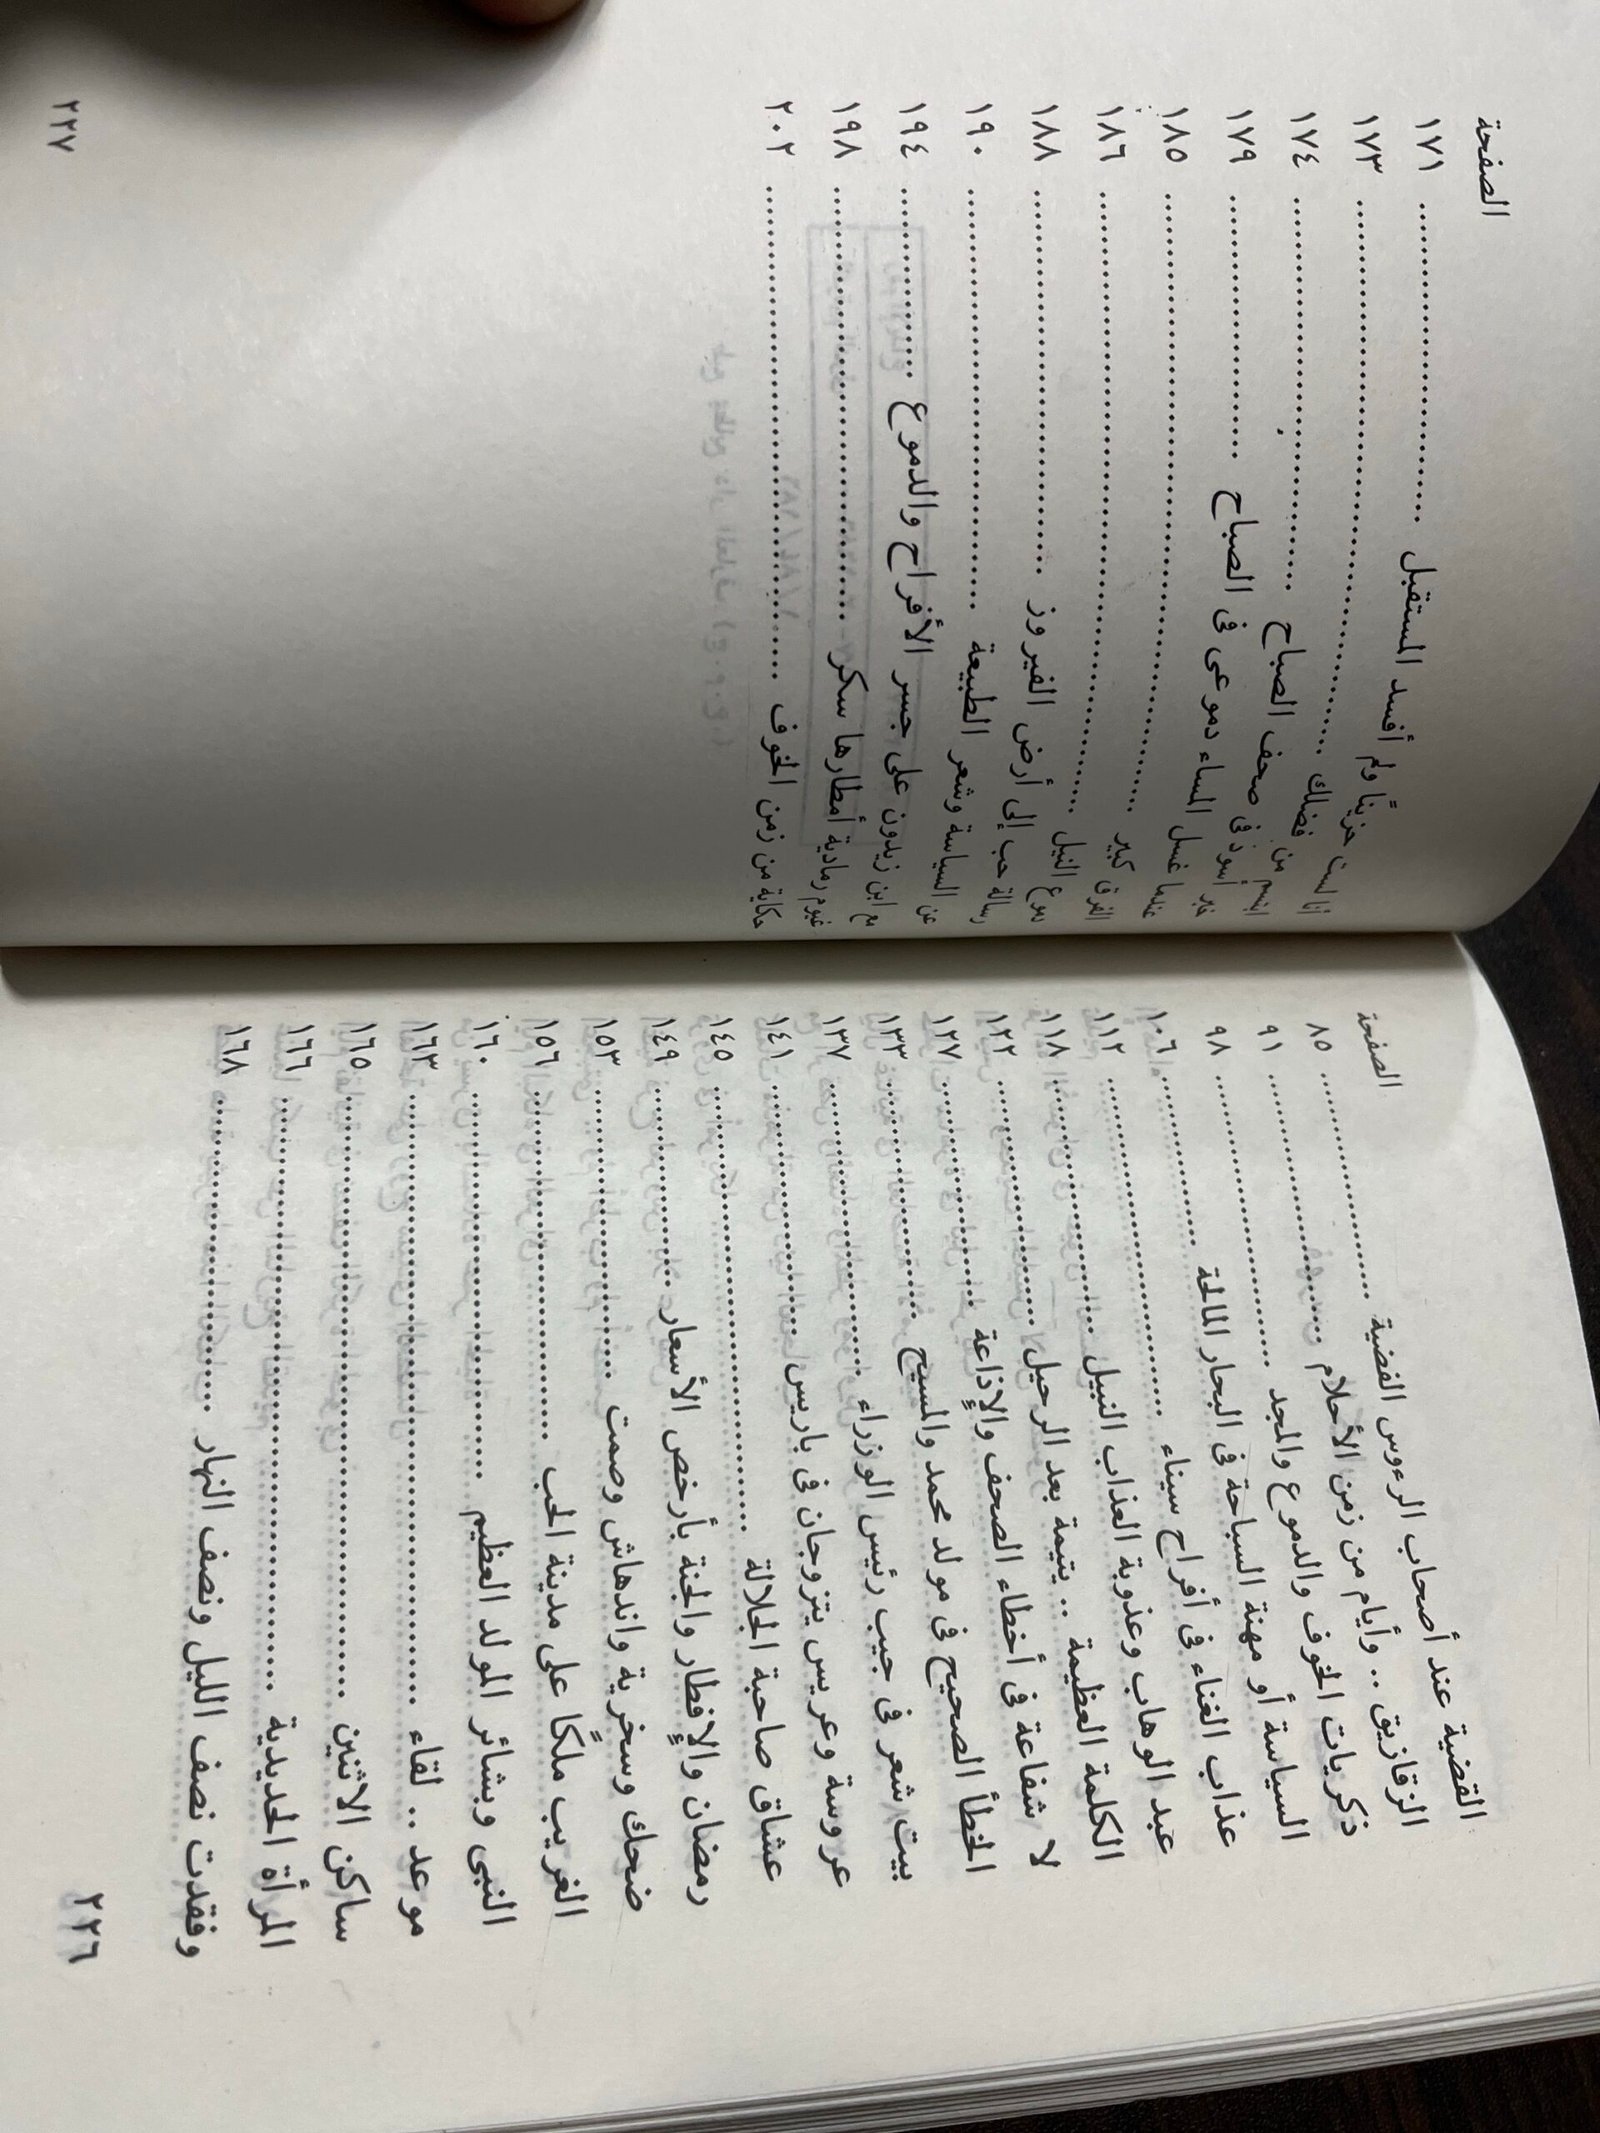 الصفحة
القضية عند أصحاب الرءوس الفضية ........ ٨٥
الزقازيق .. وأيام من زمن الأحلام ........ ٩١
ذكريات الخوف والدموع والمجد ........ ٩٨
السياسة أو مهنة السباحة فى البحار المالحة ........ ١٠٦
عذاب الغناء فى أفراح سيناء ........ ١١٢
عبد الوهاب وعذوبة العذاب النبيل ........ ١١٨
الكلمة العظيمة .. يتيمة بعد الرحيل ........ ١٢٢
لا شفاعة فى أخطاء الصحف والإذاعة ........ ١٢٧
الخطأ الصحيح فى مولد محمد والمسيح ........ ١٣٣
بيت شعر فى جيب رئيس الوزراء ........ ١٣٧
عروسة وعريس يتزوجان فى باريس ........ ١٤١
عشاق صاحبة الجلالة ........ ١٤٥
رمضان والإفطار والجنة بأرخص الأسعار ........ ١٤٩
ضحك وسخرية واندهاش وصمت ........ ١٥٣
الغريب ملكًا على مدينة الحب ........ ١٥٦
النبى وبشائر المولد العظيم ........ ١٦٠
موعد .. لقاء ........ ١٦٣
ساكن الاثنين ........ ١٦٥
المرأة الحديدية ........ ١٦٦
وفقدت نصف الليل ونصف النهار ........ ١٦٨
٢٢٦
الصفحة
أنا لست حزينًا ولم أفسد المستقبل ........ ١٧١
ابتسم من فضلك ........ ١٧٣
أسود فى صحف الصباح ........ ١٧٤
عندما غسل المساء دموعى فى الصباح ........ ١٧٩
الفرق كبير ........ ١٨٥
دموع النيل ........ ١٨٦
رسالة حب إلى أرض الفيروز ........ ١٨٨
عن السياسة وشعر الطبيعة ........ ١٩٠
مع ابن زيدون على جسر الأفراح والدموع ........ ١٩٤
غيوم رمادية أمطارها سكر ........ ١٩٨
حكاية من زمن الخوف ........ ٢٠٢
٢٢٧